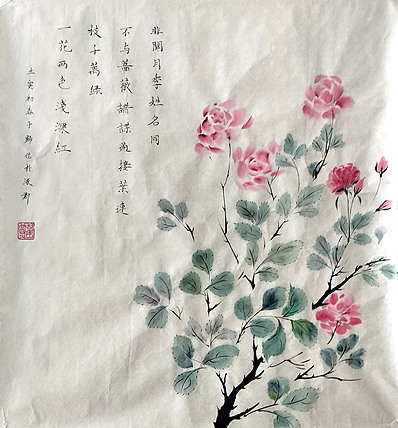 非關月季姓名同
不与薔薇譜諜通接葉連
枝千萬緑
一花兩色淺深紅
壬寅初春